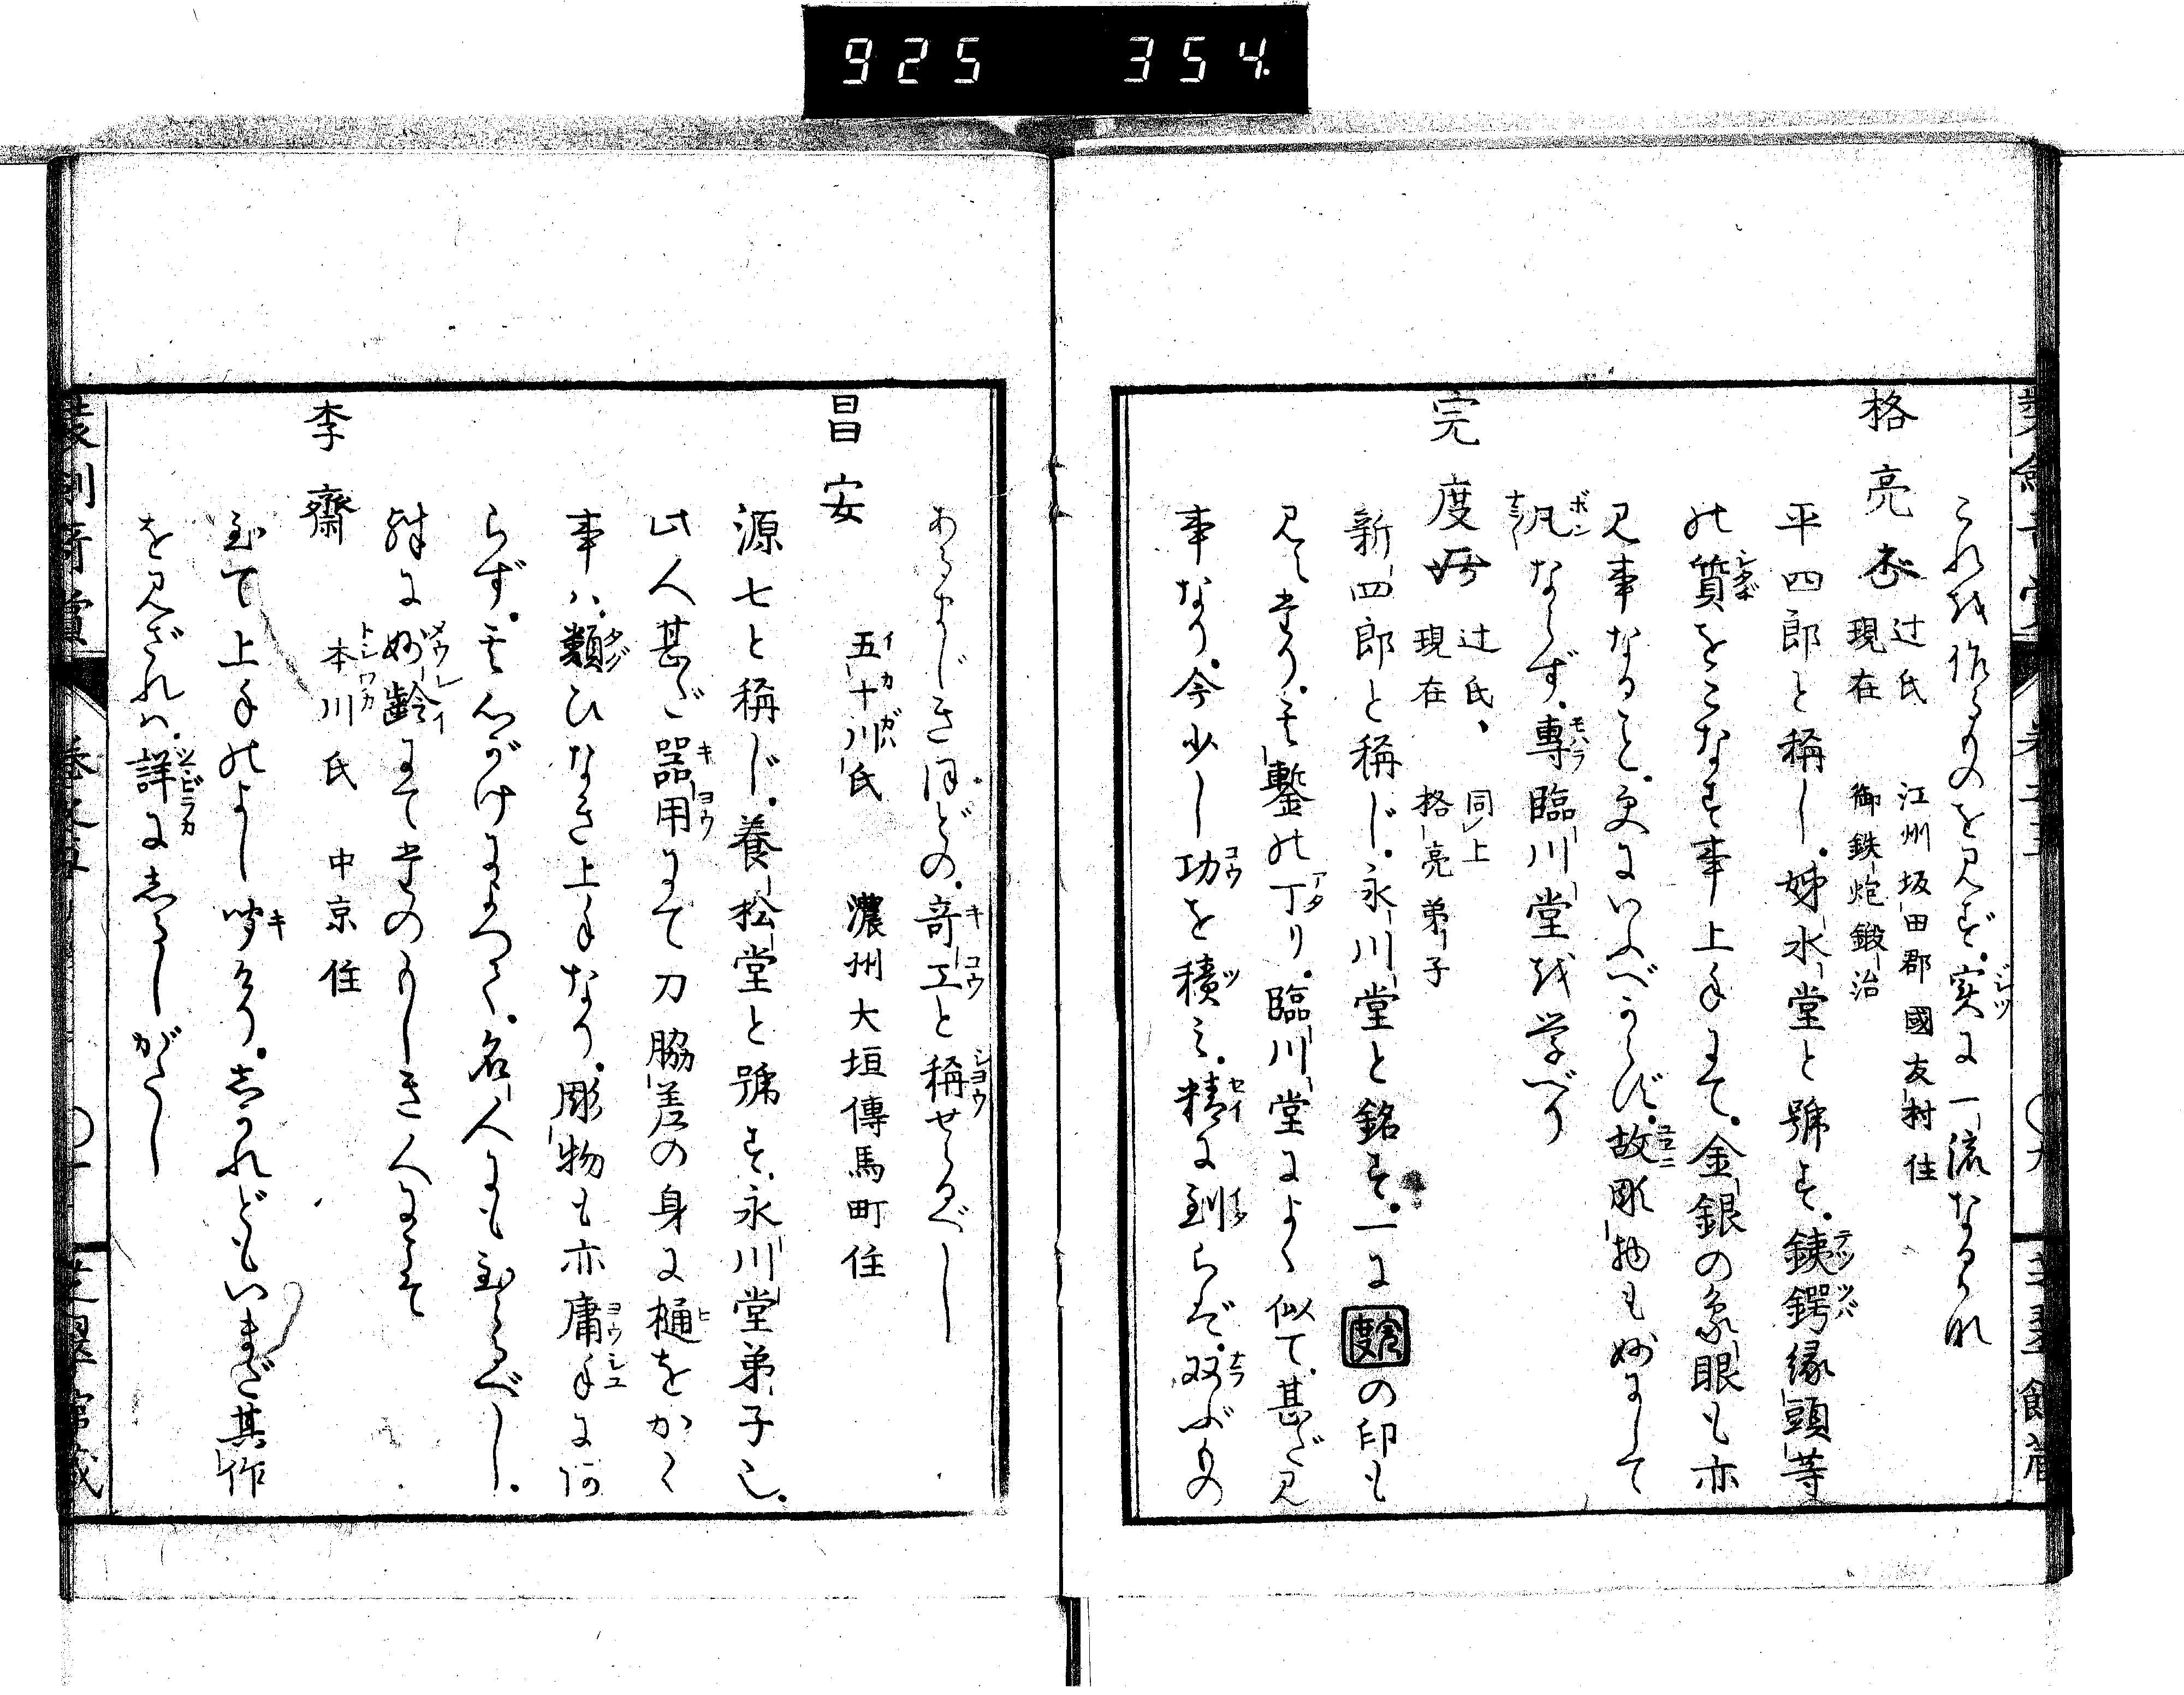 925 354.
これを作るものを見ず。実に一流なるかな
格亮 辻氏 現在 江州坂田郡國友村住 御鉄炮鍛治
平四郎と稱し。姊水堂と號す。鉄鍔縁頭等
の質をこなす事上手にて。金銀の象眼も亦
見事なること。更にいふべからず。故彫物も妙にして
凡ならず。專臨川堂を学べり
完度 辻氏、 現在 同上 格亮弟子
新四郎と稱じ。永川堂と銘す。一に の印も
見えたり。其鏨の丁り。臨川堂によく似て。甚だ見
事なり。今少し功を積ミ。精に到らバ。双ぶもの
あるまじきほどの。奇工と稱せらるべし
昌安 五十川氏 濃州大垣傳馬町住
源七と稱じ。養松堂と號す。永川堂弟子也。
此人甚ご器用にて刀脇差の身に樋をかく
事ハ。類ひなき上手なり。彫物も亦庸手に何
らず。其心がけによつて。名人にも至るべし。
殊に妙齢にてたのもしき人にこそ
李齋 本川氏 中京住
至て上手のよし聞けり。しかれどもいまだ其作
を見ざれハ。詳にしるしがたし